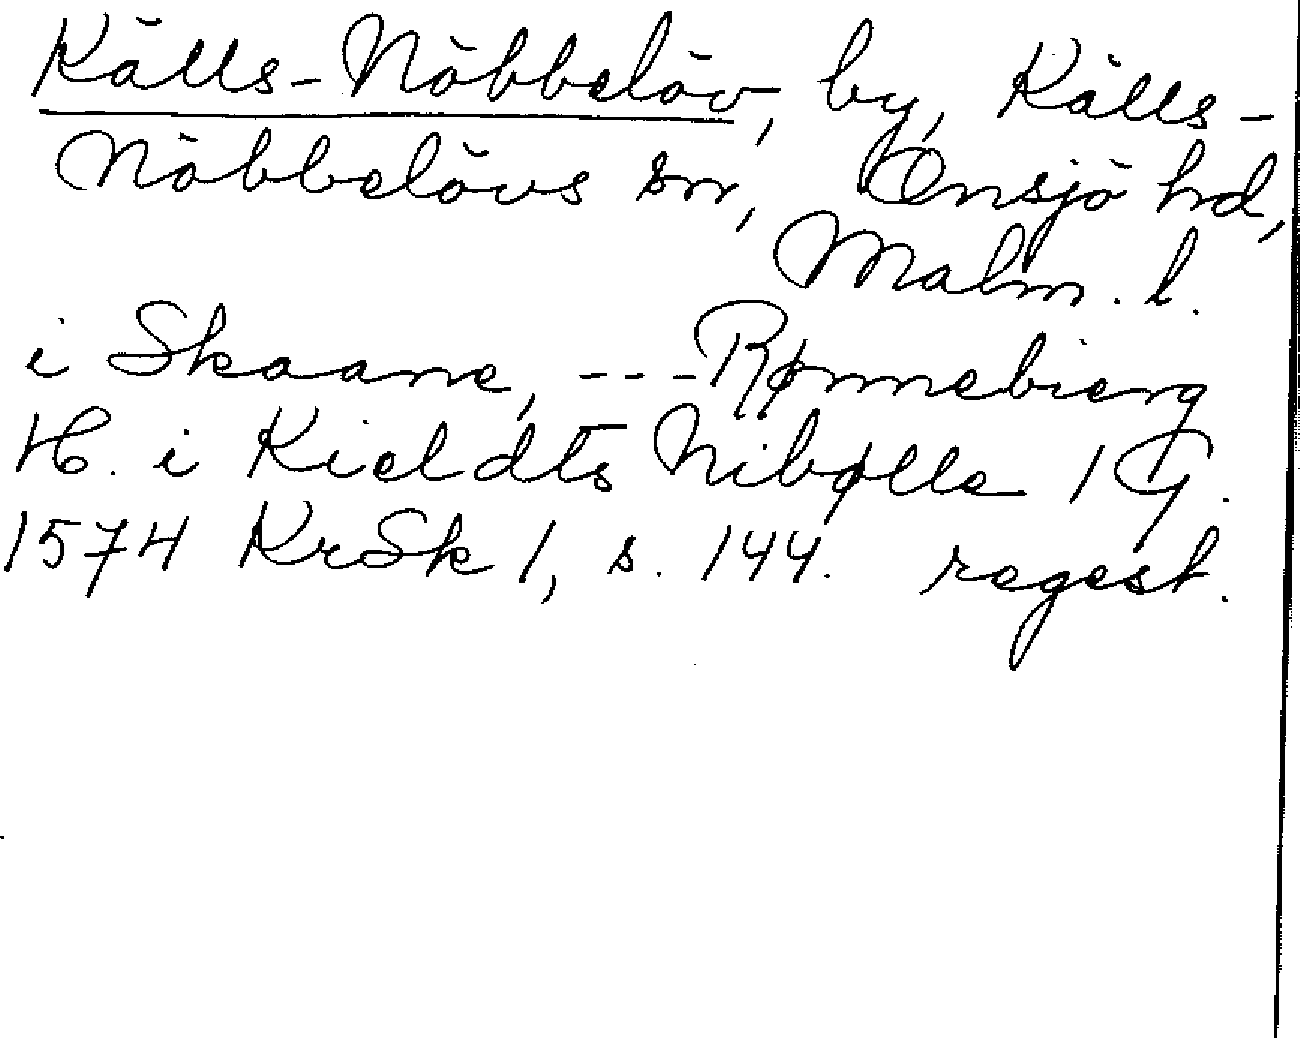 Källs-Nöbbelöv, by, Källs-
Nöbbelövs sn, Onsjö hd,
Malm. l.
i Skaane, ---Rønnebierg
H. i Kieldts Nibølle 1 G.
1574 KrSk 1, s. 144. regest.